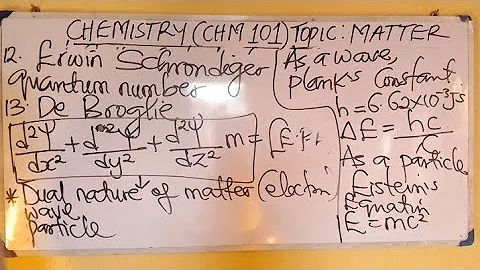 CHEMISTRY (CHM 101) TOPIC: MATTER
12. Erwin Schrondeger
quantum number
13. De Broglie
d²Ψ/dx² + d²Ψ/dy² + d²Ψ/dz² m =
* Dual nature of matter (electron)
wave
particle
As a wave,
plank's constant
h = 6 62x10⁻³Js
ΔE = hc/λ
As a particle
Eistein's
Equatin
E = mc²